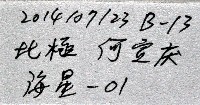 2014/07/23 B-13
北極 何宣庆
海星-01